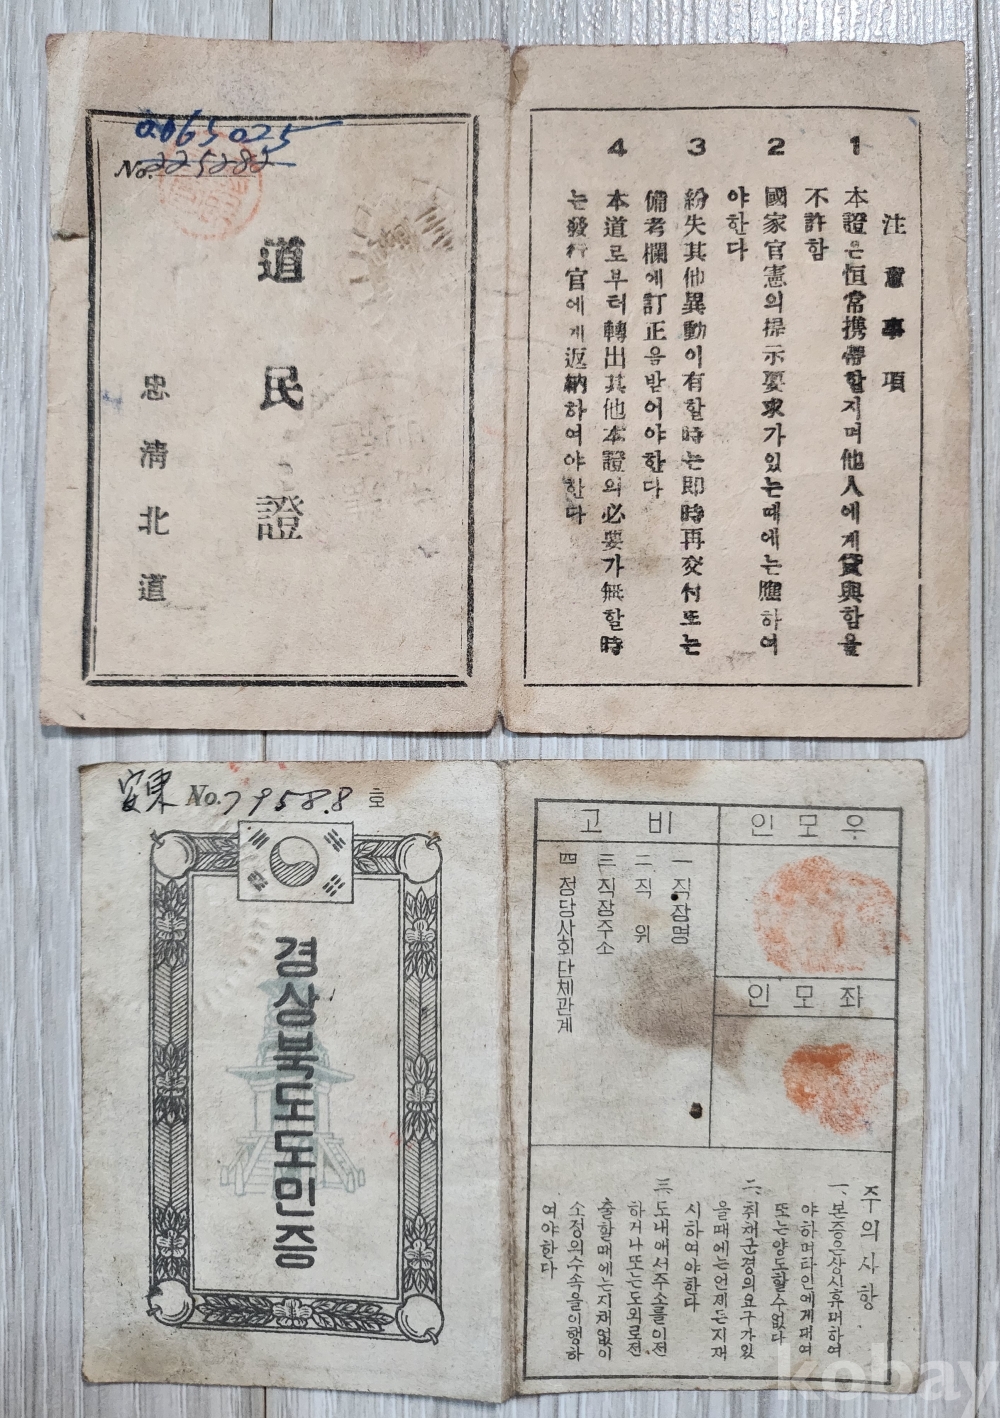 0065025
No. 225282
道民證
忠淸北道
注意事項
1 本證은恒常携帶할지며他人에게貸與함을
不許함
2 國家官憲의提示要求가있는때에는應하여
야한다
3 紛失其他異動이有할時는即時再交付또는
備考欄에訂正을받어야한다
4 本道로부터轉出其他本證의必要가無할時
는發行官에게返納하여야한다
安東 No. 79588 호
경상북도도민증
우모인
좌모인
비고
一 직장명
二 직위
三 직장주소
四 정당사회단체관계
주의사항
一、본증은상시휴대하여
야하며타인에게대여
또는양도할수없다
二、취채군경의요구가있
을때에는언제든지재
시하여야한다
三、도내애서주소를이전
하거나또는도외로전
출할때에는지채없이
소정의수속을이행하
여야한다
kobay